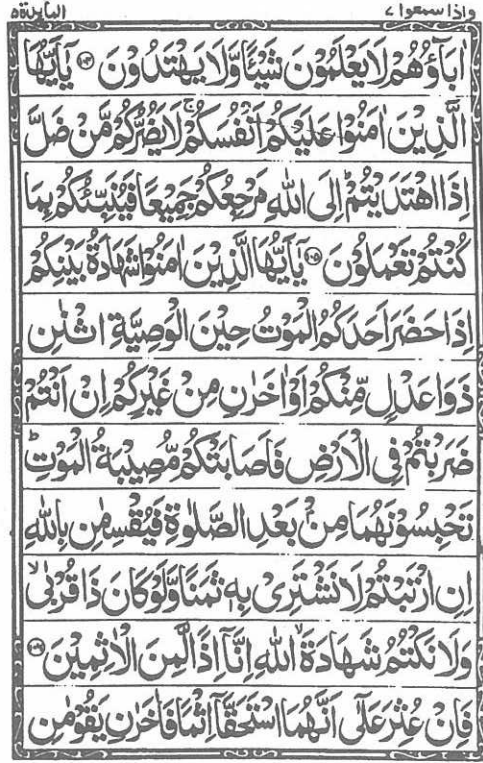 واذا سمعوا ٧ المآئدة ٥
اٰبَآؤُهُمْ لَا يَعْلَمُوْنَ شَيْـًٔا وَّلَا يَهْتَدُوْنَ ۝۱۰۴ يٰٓاَيُّهَا
الَّذِيْنَ اٰمَنُوْا عَلَيْكُمْ اَنْفُسَكُمْ ۚ لَا يَضُرُّكُمْ مَّنْ ضَلَّ
اِذَا اهْتَدَيْتُمْ ؕ اِلَى اللّٰهِ مَرْجِعُكُمْ جَمِيْعًا فَيُنَبِّئُكُمْ بِمَا
كُنْتُمْ تَعْمَلُوْنَ ۝۱۰۵ يٰٓاَيُّهَا الَّذِيْنَ اٰمَنُوْا شَهَادَةُ بَيْنِكُمْ
اِذَا حَضَرَ اَحَدَكُمُ الْمَوْتُ حِيْنَ الْوَصِيَّةِ اثْنٰنِ
ذَوَا عَدْلٍ مِّنْكُمْ اَوْ اٰخَرٰنِ مِنْ غَيْرِكُمْ اِنْ اَنْتُمْ
ضَرَبْتُمْ فِى الْاَرْضِ فَاَصَابَتْكُمْ مُّصِيْبَةُ الْمَوْتِ ؕ
تَحْبِسُوْنَهُمَا مِنْۢ بَعْدِ الصَّلٰوةِ فَيُقْسِمٰنِ بِاللّٰهِ
اِنِ ارْتَبْتُمْ لَا نَشْتَرِىْ بِهٖ ثَمَنًا وَّلَوْ كَانَ ذَا قُرْبٰى ۙ
وَلَا نَكْتُمُ شَهَادَةَ ۙ اللّٰهِ اِنَّآ اِذًا لَّمِنَ الْاٰثِمِيْنَ ۝۱۰۶
فَاِنْ عُثِرَ عَلٰٓى اَنَّهُمَا اسْتَحَقَّآ اِثْمًا فَاٰخَرٰنِ يَقُوْمٰنِ